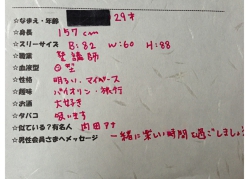 ☆なまえ・年齢 29才
☆身長 157cm
☆スリーサイズ B:82 W:60 H:88
☆職業 聖講師
☆血液型 O型
☆性格 明るい、マイペース
☆趣味 バイオリン・旅行
☆お酒 大好き
☆タバコ 吸います
☆似ている?有名人 内田アナ
☆男性会員さまへメッセージ 一緒に楽しい時間を過ごしましょう